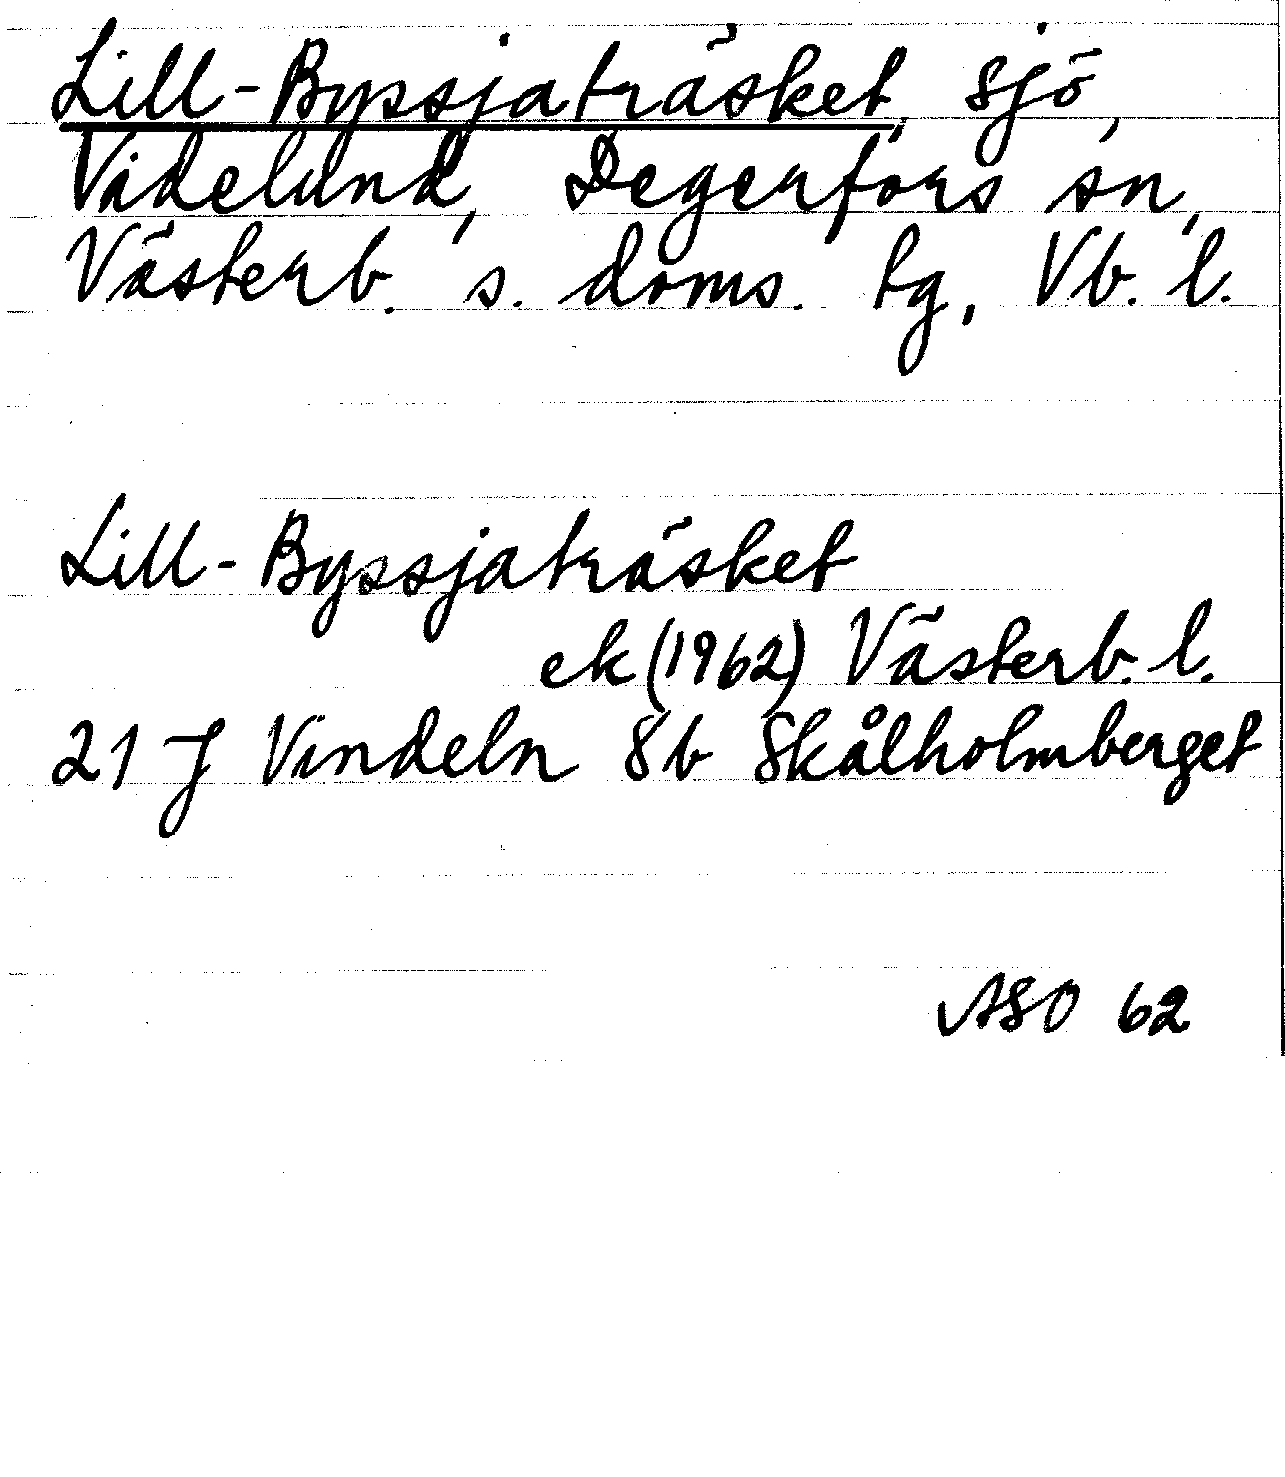 Lill-Byssjaträsket, sjö,
Videlund, Degerfors sn,
Västerb. s. doms. tg, Vb. l.
Lill-Byssjaträsket
ek (1962) Västerb. l.
21 J Vindeln 8b Skålholmberget
ASO 62